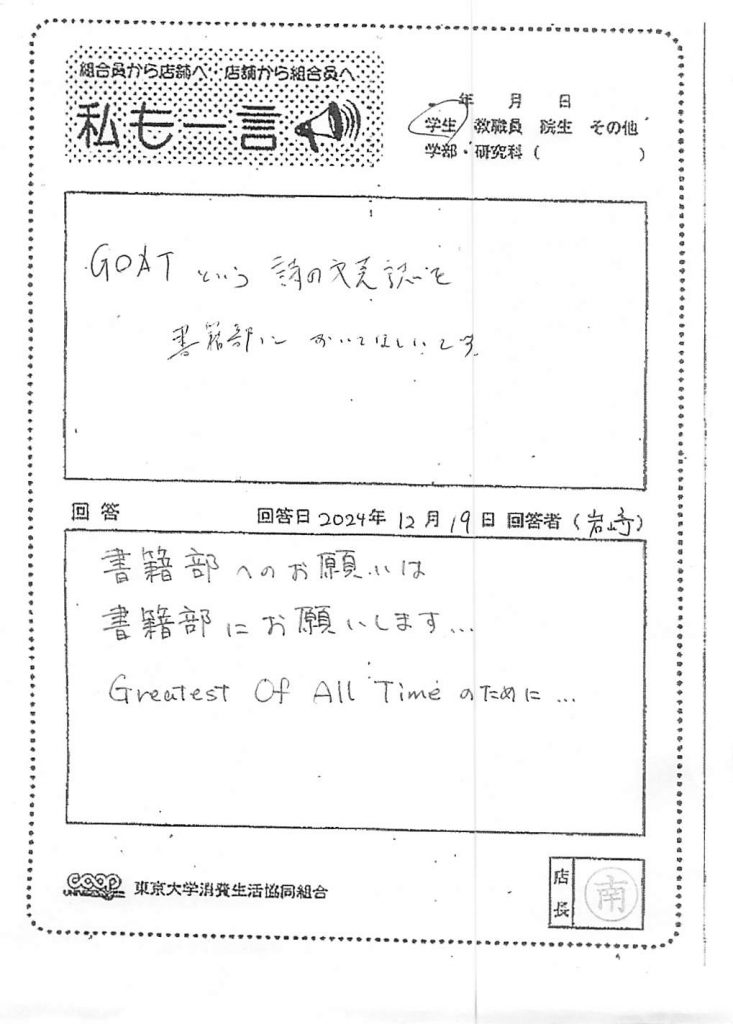 組合員から店舗へ 店舗から組合員へ
私も一言
年 月 日
学生 教職員 院生 その他
学部・研究科( )
GOATという 詩の文芸誌を
書籍部に おいてほしいです
回答 回答日 2024年 12月 19日 回答者 (岩崎)
書籍部へのお願いは
書籍部にお願いします...
Greatest Of All Time のために...
coop 東京大学消費生活協同組合
店長
南